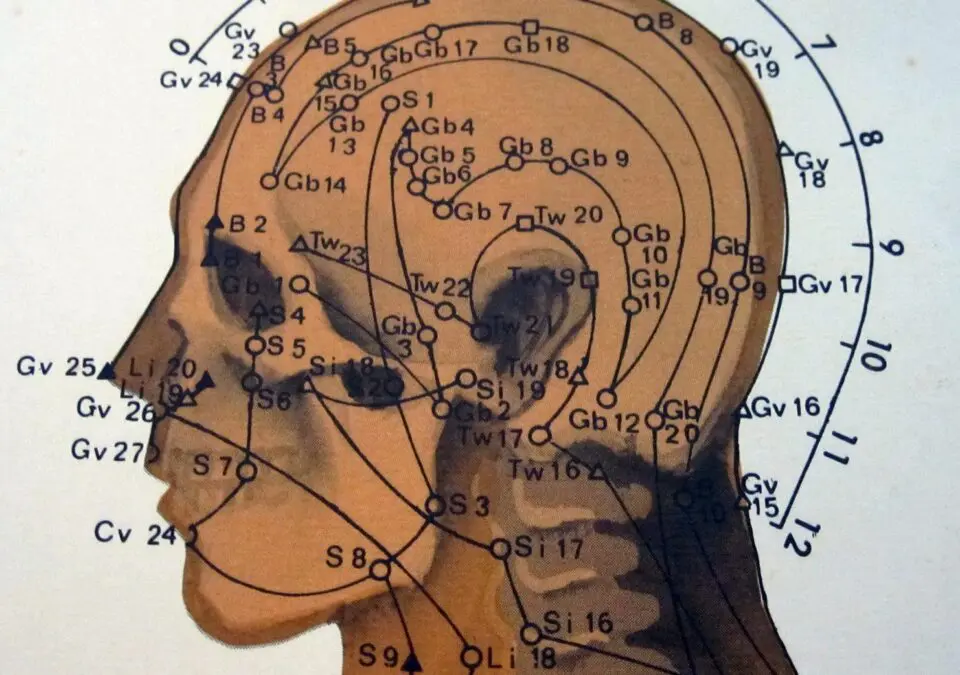 0
Gv
23
B
3
B 5
Gb
16
Gb 17
Gb 18
B
8
Gv
19
7
Gv 24
B 4
Gb
15
Gb
13
S 1
Gb 4
Gb 5
Gb6
Gb 8
Gb 9
8
Gv
18
Gb 14
Gb 7
Tw 20
B 2
B 1
Tw
23
Gb
10
Gb
19
B
9
9
Gv 17
Gb 1
Tw
22
Tw 19
Gb
11
S 4
Gb
3
Tw 21
S 5
10
Gv 25
Li 20
Li 19
S6
Si 18
S2
Si 19
Tw18
Gv 26
Gb 2
Gb 12
Gb
20
Gv 16
11
Gv27
S 7
Tw 17
Tw 16
B
10
Gv
15
12
Cv 24
S 3
S 8
Si 17
Si 16
S 9
Li 18